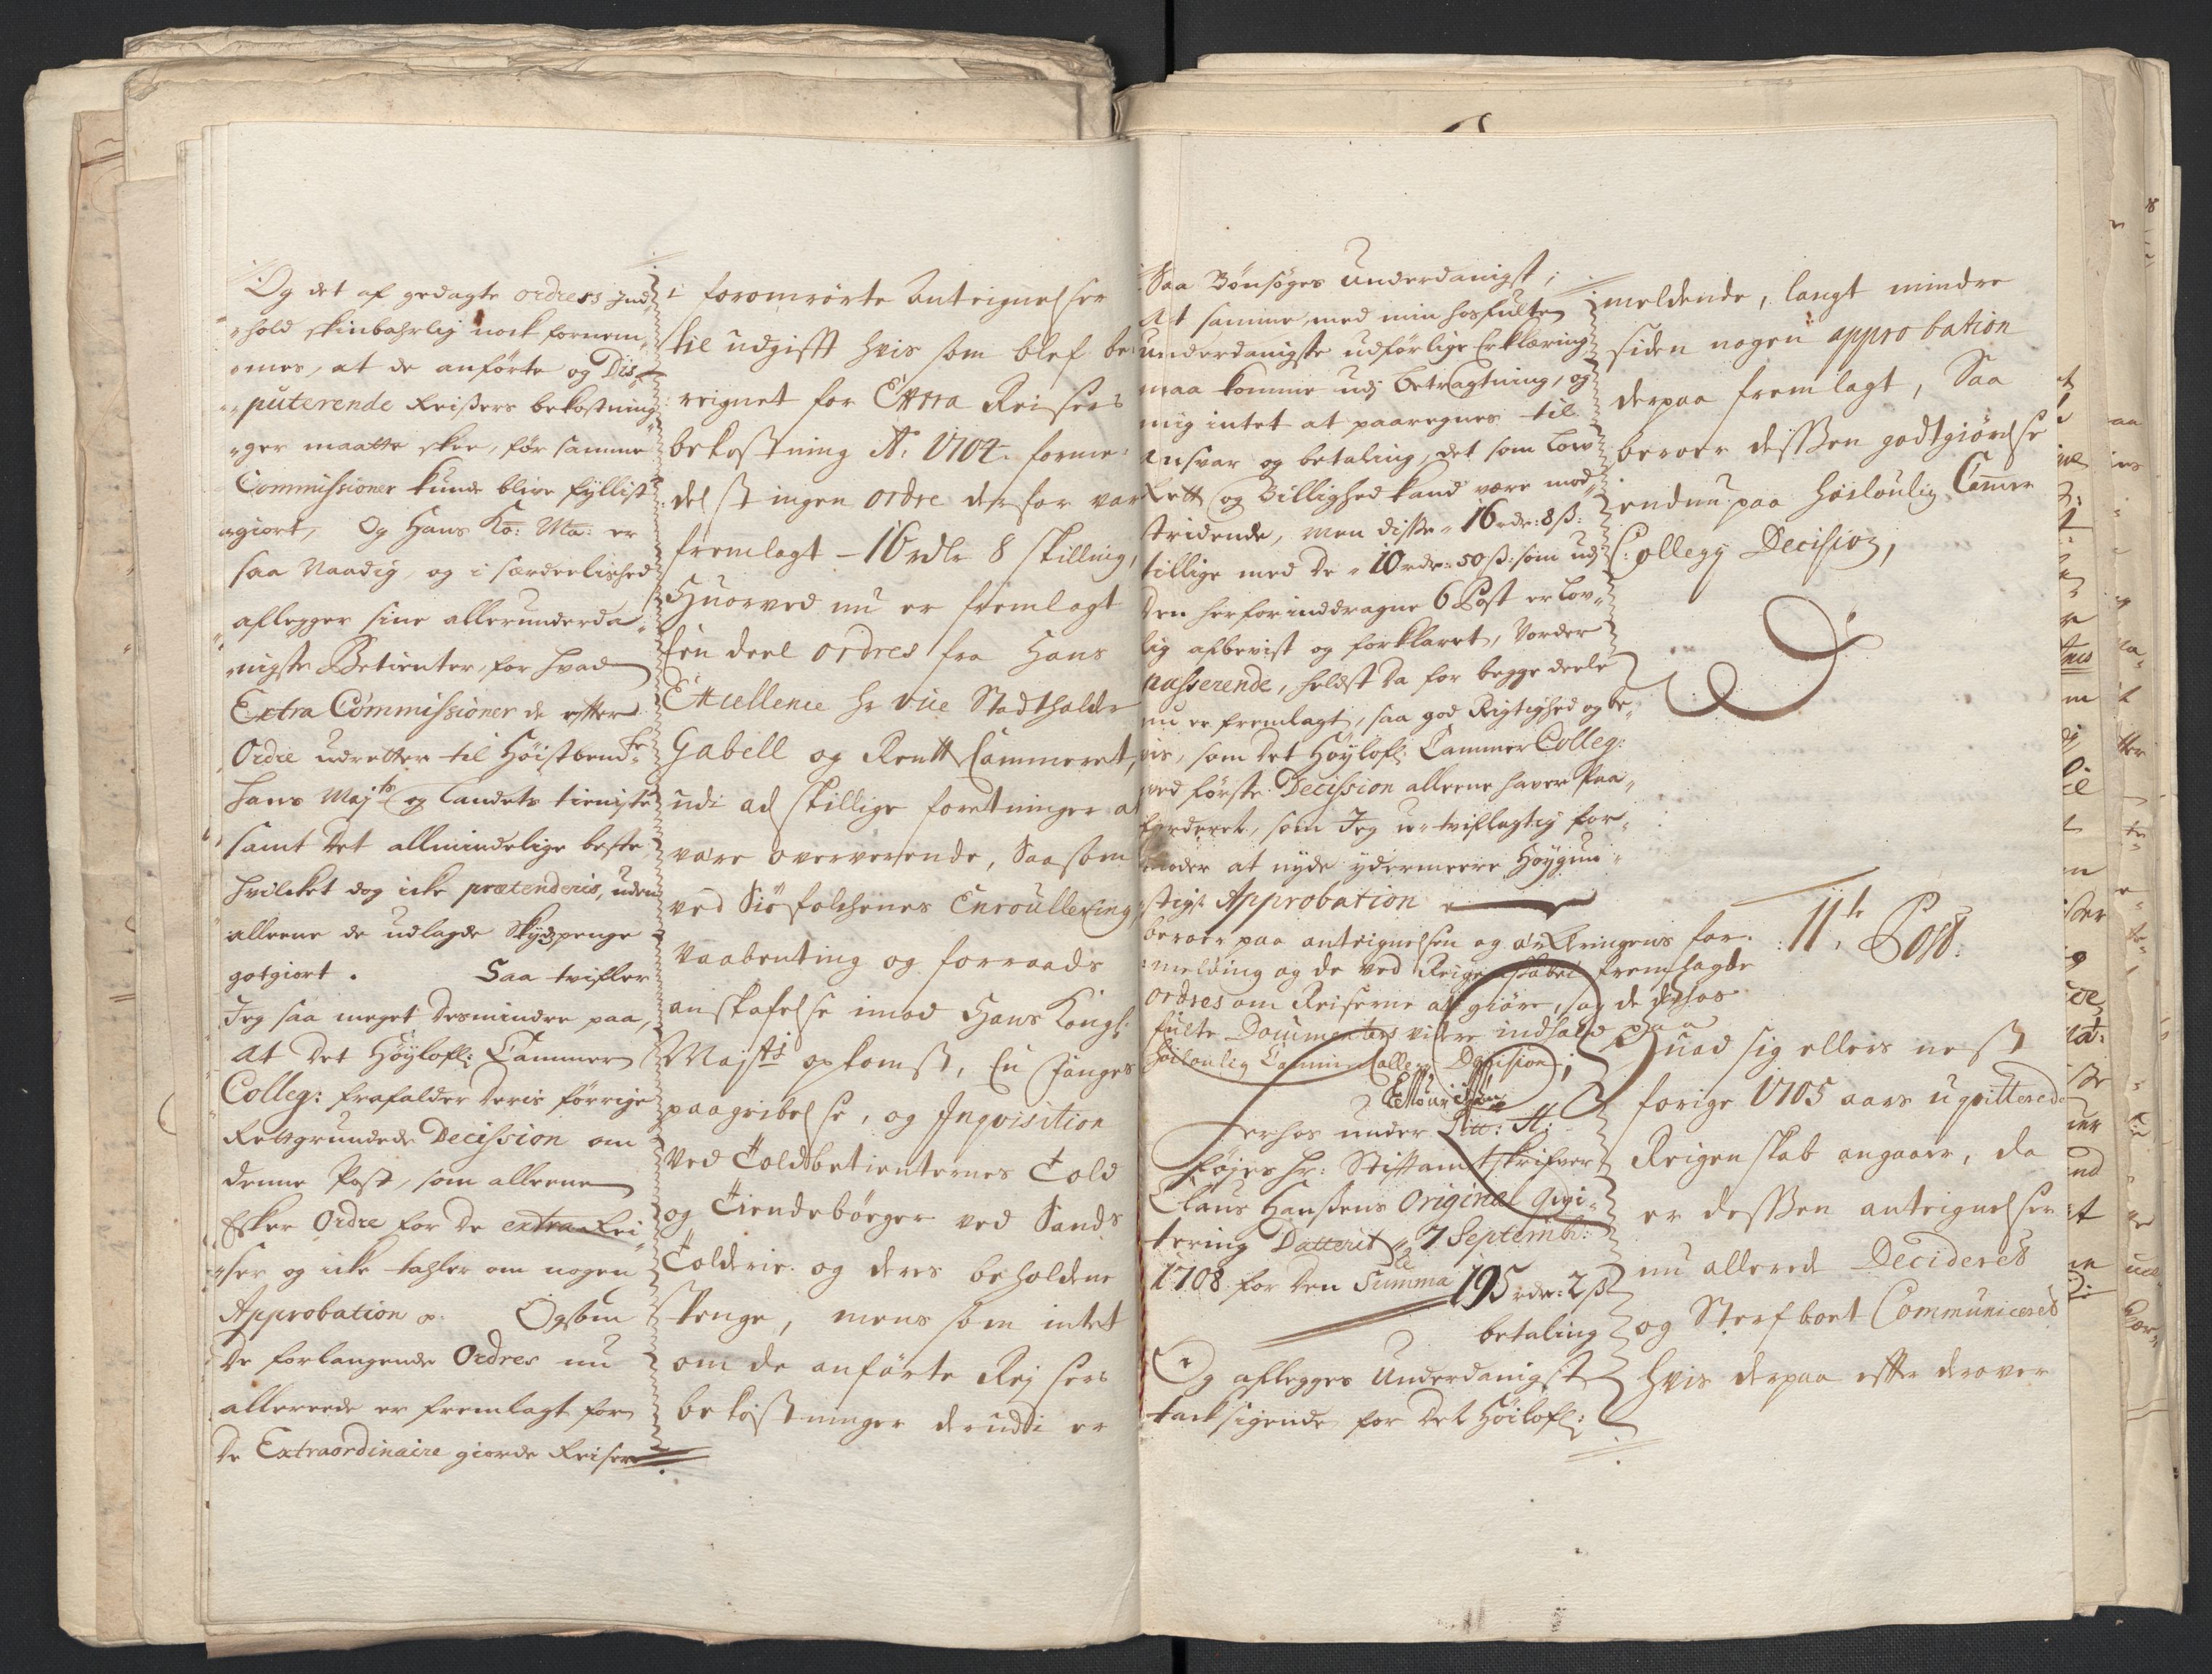 Og det af gedagte ordress Ind„
„hold skinbahrlig nock fornem„
„mes, at de anførte og Dis„
„puterende Reisers bekostning„
„ger maatte skee, før samme
Commissioner kunde blive fyllist„
„giort, Og Hans Ko: Ma: er
saa Naadig, og i særdeelished
aflegger sine allerunderda„
„nigste Betienter, for hvad
Extra Commissioner de efter
Ordre udretter til Høistbem:te
Hans Maj:ts og Landets tieniste
samt det allmindelige beste,
hvilcket dog icke prætenderis, uden
alleene de udlagde Skydspenge
gotgiort. Saa tvifler
Jeg saa meget desmindre paa,
at det Høylofl: Cammer
Colleg: frafalder deris forrige
Retsgrundede Decission om
denne Post, som alleene
Esker Ordre for de extra Rei„
„ser og icke tahler om nogen
Approbation Ogsom
de forlangende Ordres nu
allereede er fremlagt for
de Extraordinaire giorde Reiser
i foromrørte Anteignelser
til udgifft hvis som blef be
reignet for Extra Reisers
bekostning A: 1704. forme„
delst ingen ordre derfor var
fremlagt – 16 rdlr 8 skilling,
Huorved nu er fremlagt
Een deel ordres fra Hans
Excellence Hr vice Stadtholder
Gabell og Rentt Cammeret,
udi adskillige foretninger at
være oververende, Saasom
ved Siøfolchenes Enroullering,
Vaabenting og forraads
anskafelse imod Hans Kongl:
Maj:ts opkomst, En Fanges
paagribelse, og Inqvisition
ved Toldbetienternes Told
og Tiendebøger ved Sands
Tolderie. og deres beholdene
Penge, mens som intet
om de anførte Rejsers
bekostninger derudi er
Saa Bønsøges underdanigst,
At samme med min hosfulte
underdanigste udførlige Erklæring
maa komme udj betragtning, og
mig intet at paaregnes til
Ansvar og betaling, det som Low
Rett og Billighed kand være mod„
stridende, men disse 16 rdr: 8 ß:
tillige med de 10 rdr: 50 ß: som udj
den herforinddragne 6 Post er lov„
lig afbevist og forklaret, Vorder
passerende, heldst da for begge deele
nu er fremlagt, saa god Rigtighed og be„
vis, som det Høylofl: Cammer Colleg:
ved første Decission alleene haver Paa„
forderet, som Jeg u-tviflagtig for„
moder at nyde ydermeere Høygun„
„stigst Approbation
beroer paa antegnelsen og erkleringens for„
melding og de ved Reigenskabet fremlagde
ordres om Reiserne at giøre, og de derhos
fulte Documenters videre indhold paa
Høilovlig Cammer Collegij Decision;
erhos under Litt: A:
føjes Hr: Stiftamtskrifver
Claus Hanssens Original Qvi„
tering Datterit d 7 Septembr:
1708 for den Summa 195 rdr: 2 ß
betaling
Og aflegges Underdanigst
tacksigende for det Høilofl:
meldende, langt mindre
siden nogen approbation
derpaa fremlagt, Saa
beroer dessen godtgiørelse
endnu paa Høilovlig Camer
Collegy Decision,
11te Post:
Huad sig ellers nest
forige 1705 aars uqvitterede
Reigenskab angaaer, da
er dessen anteignelser
nu allerede Decideret
og Sterfboet Communiceret
hvis derpaa efter derover